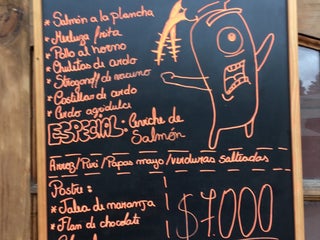 * Salmón a la plancha
* Merluza frita
* Pollo al horno
* Chulitas de cerdo
* Strogonoff de vacuno
* Costillar de cerdo
* Cerdo agridulce
ESPECIAL: Ceviche de
Salmón
Arroz/Puri/Papas mayo/verduras salteadas
Postre:
* Jalea de naranja
* Flan de chocolate
$7.000